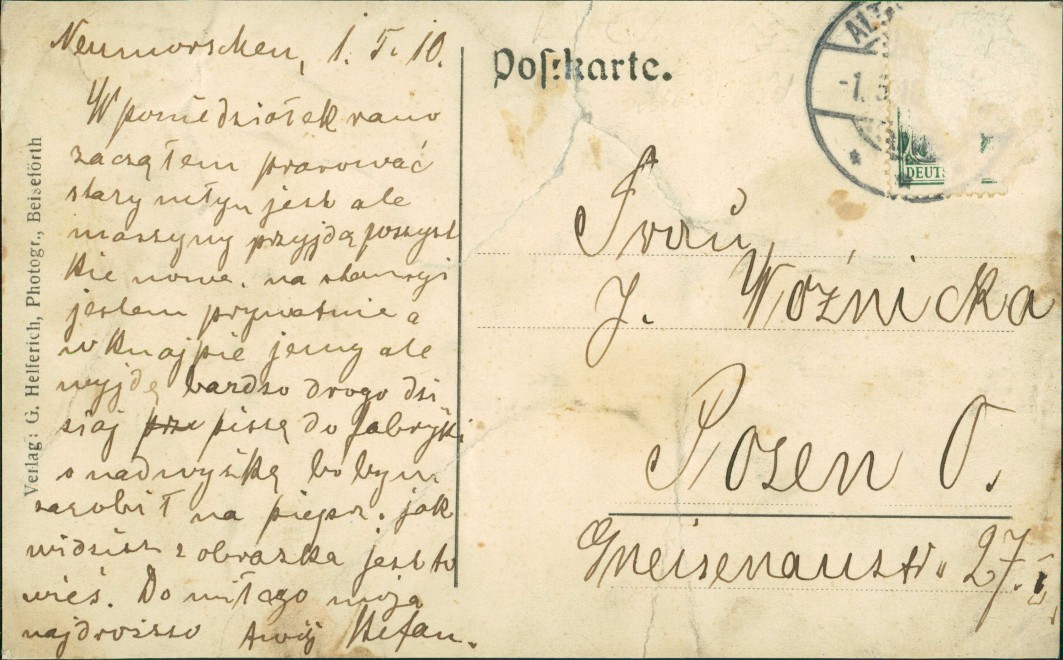 Neumorschen, 1. 5. 10.
W poniedziałek rano
zacząłem pracować
stary młyn jest ale
maszyny przyjdą wszyst
kie nowe. na stancyi
jestem prywatnie a
w knajpie jemy ale
wyjdę bardzo drogo dzi
siaj piszę do fabryki
o nadwyżkę bo bym
zarobił na pieprz. jak
widzisz z obrazka jest to
wieś. Do miłego moja
najdroższo Twój Stefan.
Verlag: G. Helferich, Photogr., Beiseförth
Postkarte.
ALT
-1. 5. 10
DEUTS
Frau
J. Woźnicka
Posen O.
Gneisenaustr. 27. I